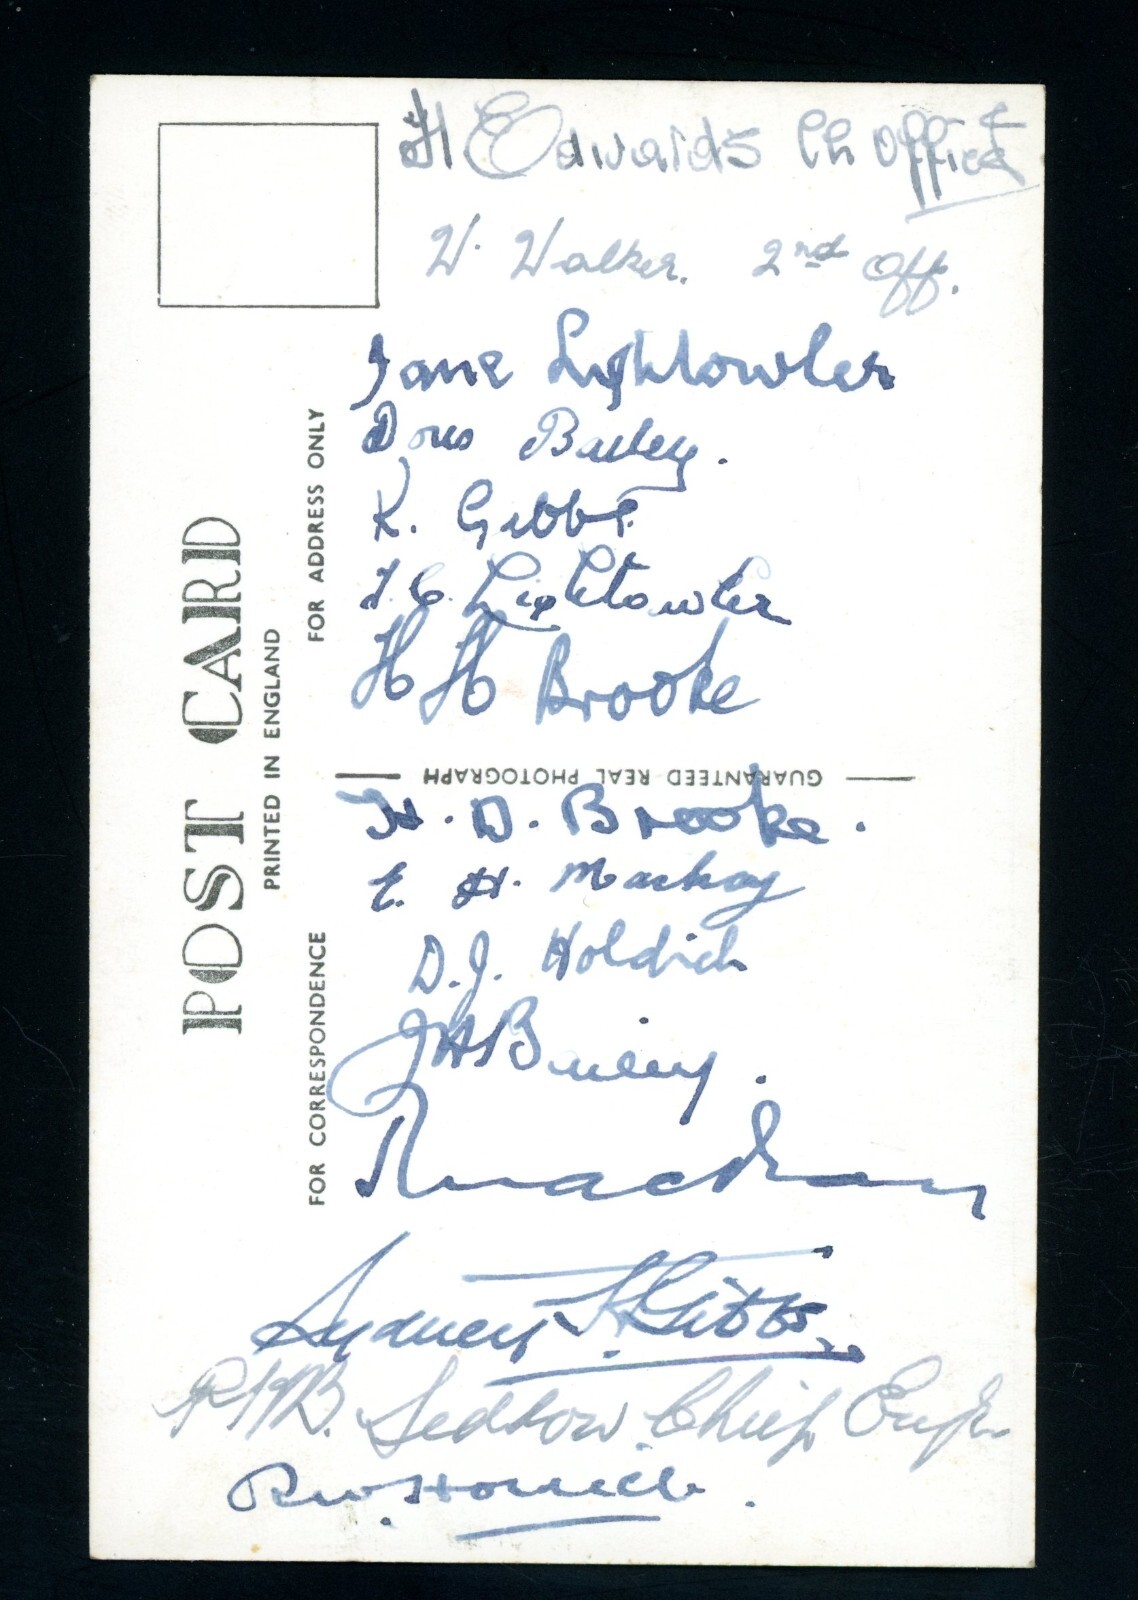 H Edwards Ch Officer
W. Walker. 2nd Off.
Jane Lightowler
Doris Bailey.
K. Gibbs.
Lightowler
H H Brooke
GUARANTEED REAL PHOTOGRAPH
H. D. Brooke.
E. H. Mackay
D.J. Holdich
J H Bailey.
Sydney Gibbs
Seddon. Chief Engr.
R.W.
POST CARD
PRINTED IN ENGLAND
FOR CORRESPONDENCE
FOR ADDRESS ONLY